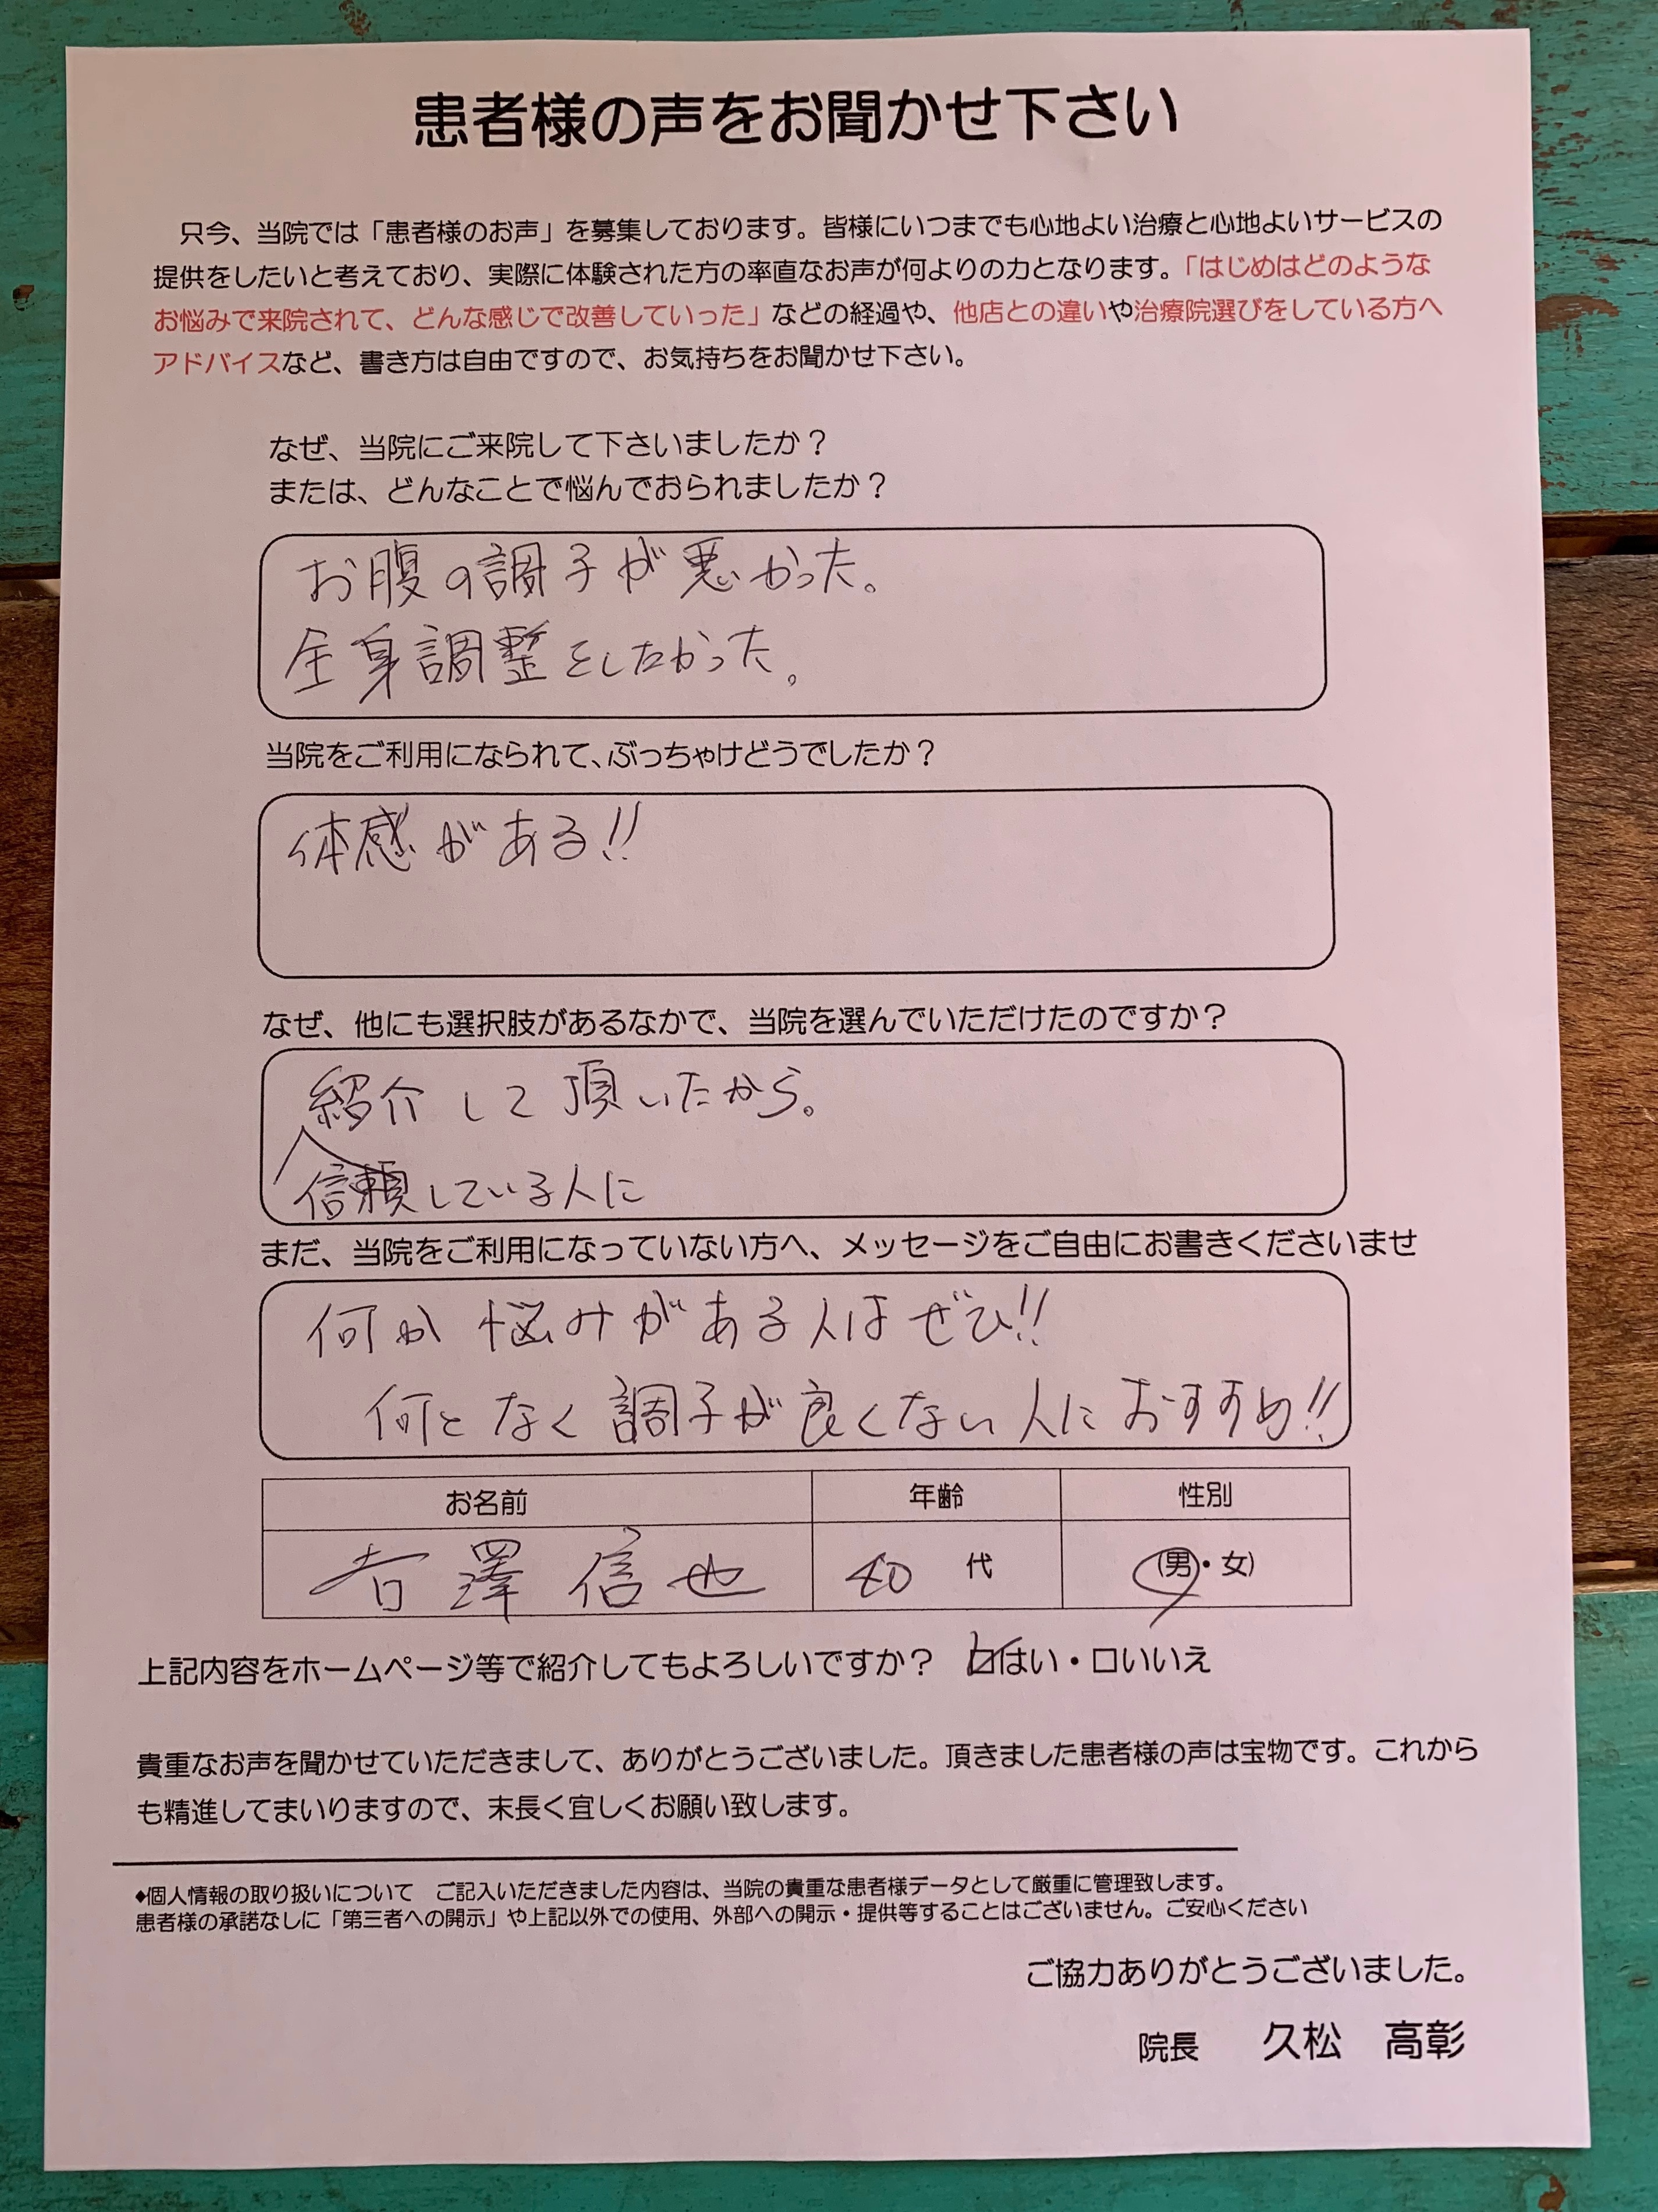 患者様の声をお聞かせ下さい
只今、当院では「患者様のお声」を募集しております。皆様にいつまでも心地よい治療と心地よいサービスの
提供をしたいと考えており、実際に体験された方の率直なお声が何よりの力となります。「はじめはどのような
お悩みで来院されて、どんな感じで改善していった」などの経過や、他店との違いや治療院選びをしている方へ
アドバイスなど、書き方は自由ですので、お気持ちをお聞かせ下さい。
なぜ、当院にご来院して下さいましたか？
または、どんなことで悩んでおられましたか？
お腹の調子が悪かった。
全身調整をしたかった。
当院をご利用になられて、ぶっちゃけどうでしたか？
体感がある!!
なぜ、他にも選択肢があるなかで、当院を選んでいただけたのですか？
紹介して頂いたから。
信頼している人に
まだ、当院をご利用になっていない方へ、メッセージをご自由にお書きくださいませ
何か悩みがある人はぜひ!!
何となく調子が良くない人におすすめ!!
お名前 年齢 性別
澤 信也 40 代 (男・女)
上記内容をホームページ等で紹介してもよろしいですか？ 口はい・口いいえ
貴重なお声を聞かせていただきまして、ありがとうございました。頂きました患者様の声は宝物です。これから
も精進してまいりますので、末長く宜しくお願い致します。
◆個人情報の取り扱いについて ご記入いただきました内容は、当院の貴重な患者様データとして厳重に管理致します。
患者様の承諾なしに「第三者への開示」や上記以外での使用、外部への開示・提供等することはございません。ご安心ください
ご協力ありがとうございました。
院長 久松 高彰